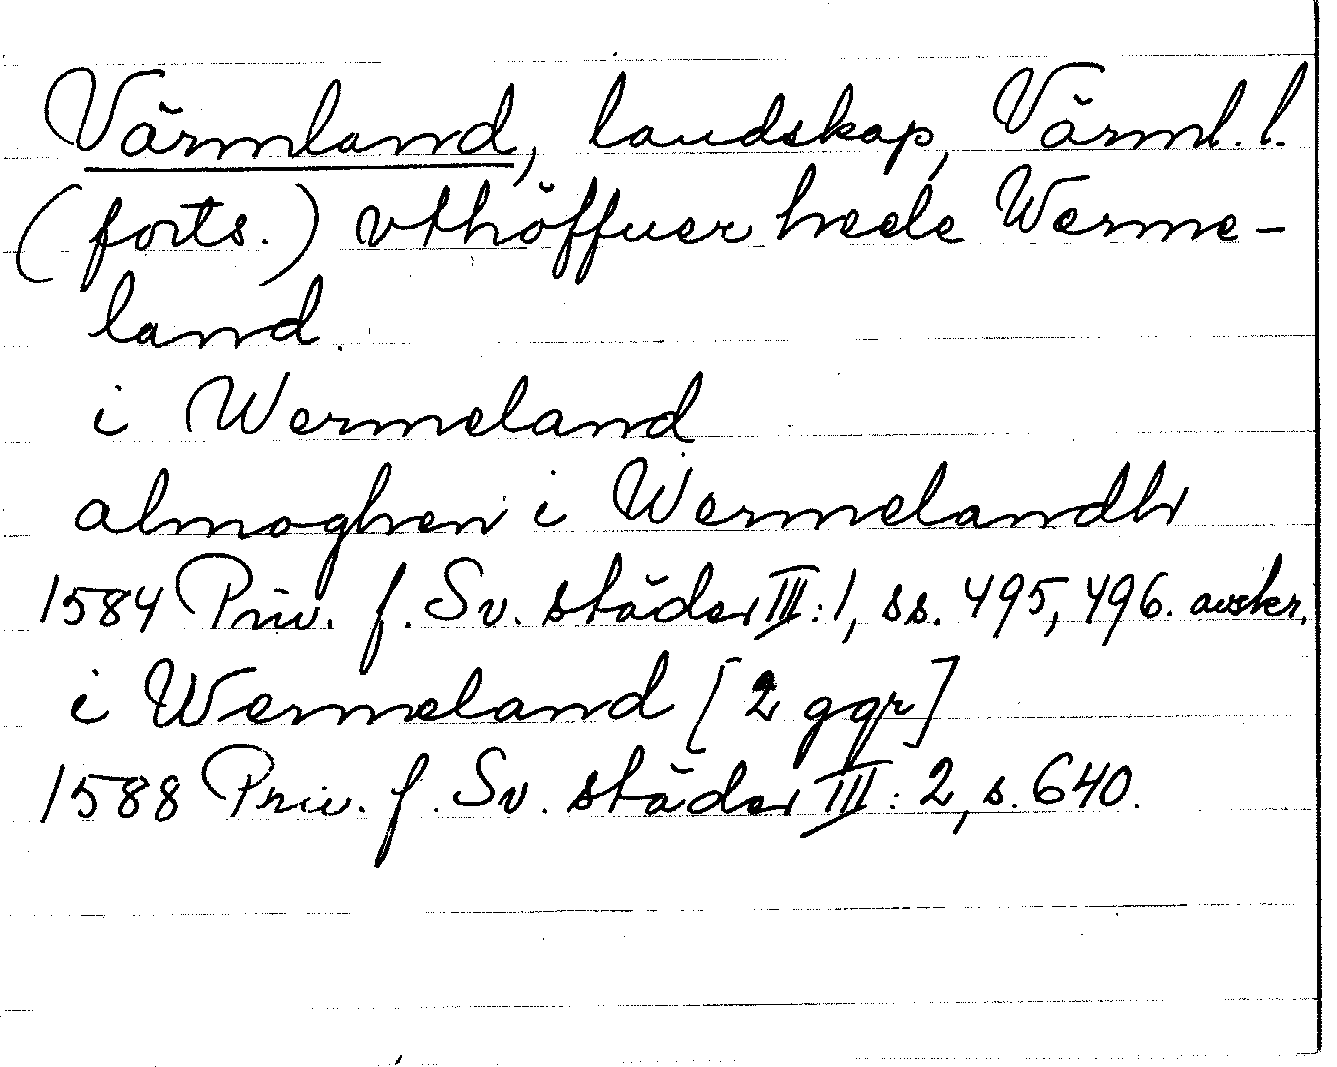 Värmland, landskap, Värml. l.
(forts.) vthöffuer heele Werme-
land.
i Wermeland
almoghen i Wermelandh
1584 Priv. f. Sv. städer III:1, ss. 495, 496. avskr.
i Wermeland [2 ggr]
1588 Priv. f. Sv. städer III:2, s. 640.